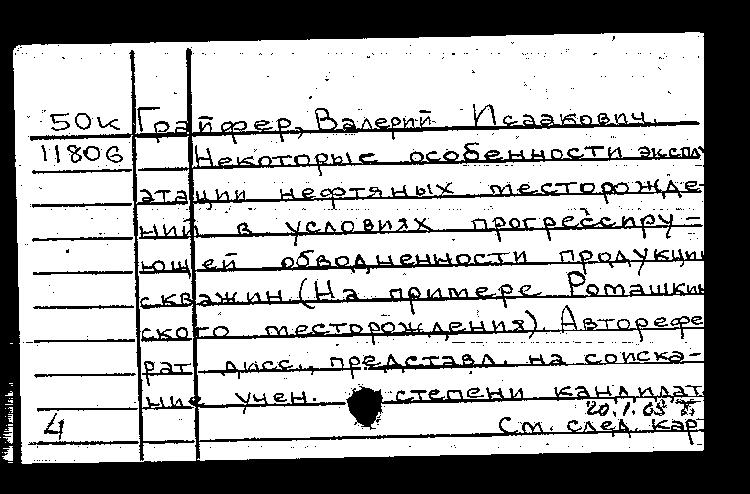 50к Грайфер, Валерий Исаакович.
11806 Некоторые особенности экспл
атации нефтяных месторожде-
ний в условиях прогрессиру=
ющей обводненности продукции
скважин. (На примере Ромашкин
ского месторождения). Авторефе
рат дисс., представл. на соиска-
ние учен. степени кандидат
4 См. след. кар